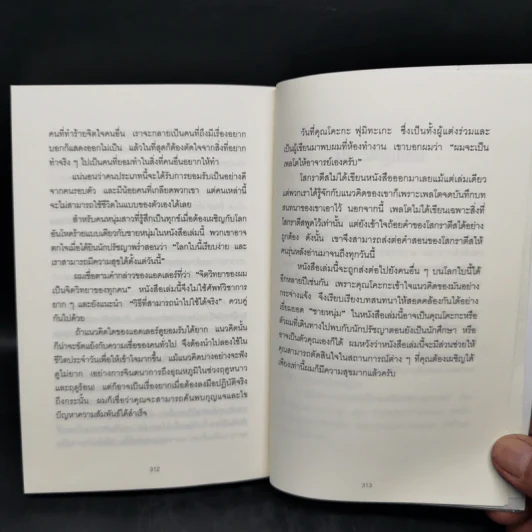 คนที่ทำร้ายจิตใจคนอื่น เราจะกลายเป็นคนที่ถึงมีเรื่องอยาก
บอกก็แสดงออกไม่เป็น แล้วในที่สุดก็ต้องตัดใจจากสิ่งที่อยาก
ทำจริง ๆ ไปเป็นคนที่ยอมทำในสิ่งที่คนอื่นอยากให้ทำ
แน่นอนว่าคนประเภทนี้จะได้รับการยอมรับเป็นอย่างดี
จากคนรอบตัว และมีน้อยคนที่เกลียดพวกเขา แต่คนเหล่านี้
จะไม่สามารถใช้ชีวิตในแบบของตัวเองได้เลย
สำหรับคนหนุ่มสาวที่รู้สึกเป็นทุกข์เมื่อต้องเผชิญกับโลก
อันโหดร้ายแบบเดียวกับชายหนุ่มในหนังสือเล่มนี้ พวกเขาอาจ
ตกใจเมื่อได้ยินนักปรัชญาพร่ำสอนว่า "โลกใบนี้เรียบง่าย และ
เราสามารถมีความสุขได้ตั้งแต่วันนี้"
ผมเชื่อตามคำกล่าวของแอดเลอร์ที่ว่า "จิตวิทยาของผม
เป็นจิตวิทยาของทุกคน" หนังสือเล่มนี้จึงไม่ใช้คำศัพท์วิชาการ
ยาก ๆ และยังแนะนำ "วิธีที่สามารถนำไปใช้ได้จริง" ควบคู่
กันไปด้วย
ถ้าแนวคิดใดของแอดเลอร์ดูยอมรับได้ยาก แนวคิดนั้น
ก็น่าจะขัดแย้งกับความเชื่อของคนทั่วไป จึงต้องนำไปลองใช้ใน
ชีวิตประจำวันเพื่อให้เข้าใจมากขึ้น แม้แนวคิดบางอย่างจะฟัง
ดูไม่ยาก (อย่างการจินตนาการถึงอุณหภูมิในช่วงฤดูหนาว
และฤดูร้อน) แต่ก็อาจเป็นเรื่องยากเมื่อต้องลงมือปฏิบัติจริง
ถึงกระนั้น ผมก็เชื่อว่าคุณจะสามารถค้นพบกุญแจและไข
ปัญหาความสัมพันธ์ได้สำเร็จ
312
วันที่คุณโคะกะ ฟุมิทะเกะ ซึ่งเป็นทั้งผู้แต่งร่วมและ
เป็นผู้เขียนมาพบผมที่ห้องทำงาน เขาบอกผมว่า "ผมจะเป็น
เพลโตให้อาจารย์เองครับ"
โสกราตีสไม่ได้เขียนหนังสือออกมาเลยแม้แต่เล่มเดียว
แต่พวกเราได้รู้จักกับแนวคิดของเขาก็เพราะเพลโตจดบันทึกบท
สนทนาของเขาเอาไว้ นอกจากนี้ เพลโตไม่ได้เขียนเฉพาะสิ่งที่
โสกราตีสพูดไว้เท่านั้น แต่ยังเข้าใจถ้อยคำของโสกราตีสได้อย่าง
ถูกต้อง ดังนั้น เขาจึงสามารถส่งต่อคำสอนของโสกราตีสให้
คนรุ่นหลังอ่านมาจนถึงทุกวันนี้
หนังสือเล่มนี้จะถูกส่งต่อไปยังคนอื่น ๆ บนโลกใบนี้ได้
อีกหลายปีเช่นกัน เพราะคุณโคะกะเข้าใจแนวคิดของผมอย่าง
กระจ่างแจ้ง จึงเรียบเรียงบทสนทนาให้สอดคล้องกันได้อย่าง
เยี่ยมยอด "ชายหนุ่ม" ในหนังสือเล่มนี้อาจเป็นคุณโคะกะหรือ
ตัวผมที่เดินทางไปพบกับนักปรัชญาตอนยังเป็นนักศึกษา หรือ
อาจเป็นตัวคุณเองก็ได้ ผมหวังว่าหนังสือเล่มนี้จะมีส่วนช่วยให้
คุณสามารถตัดสินใจในสถานการณ์ต่าง ๆ ที่คุณต้องเผชิญได้
เพียงเท่านี้ผมก็มีความสุขมากแล้วครับ
313